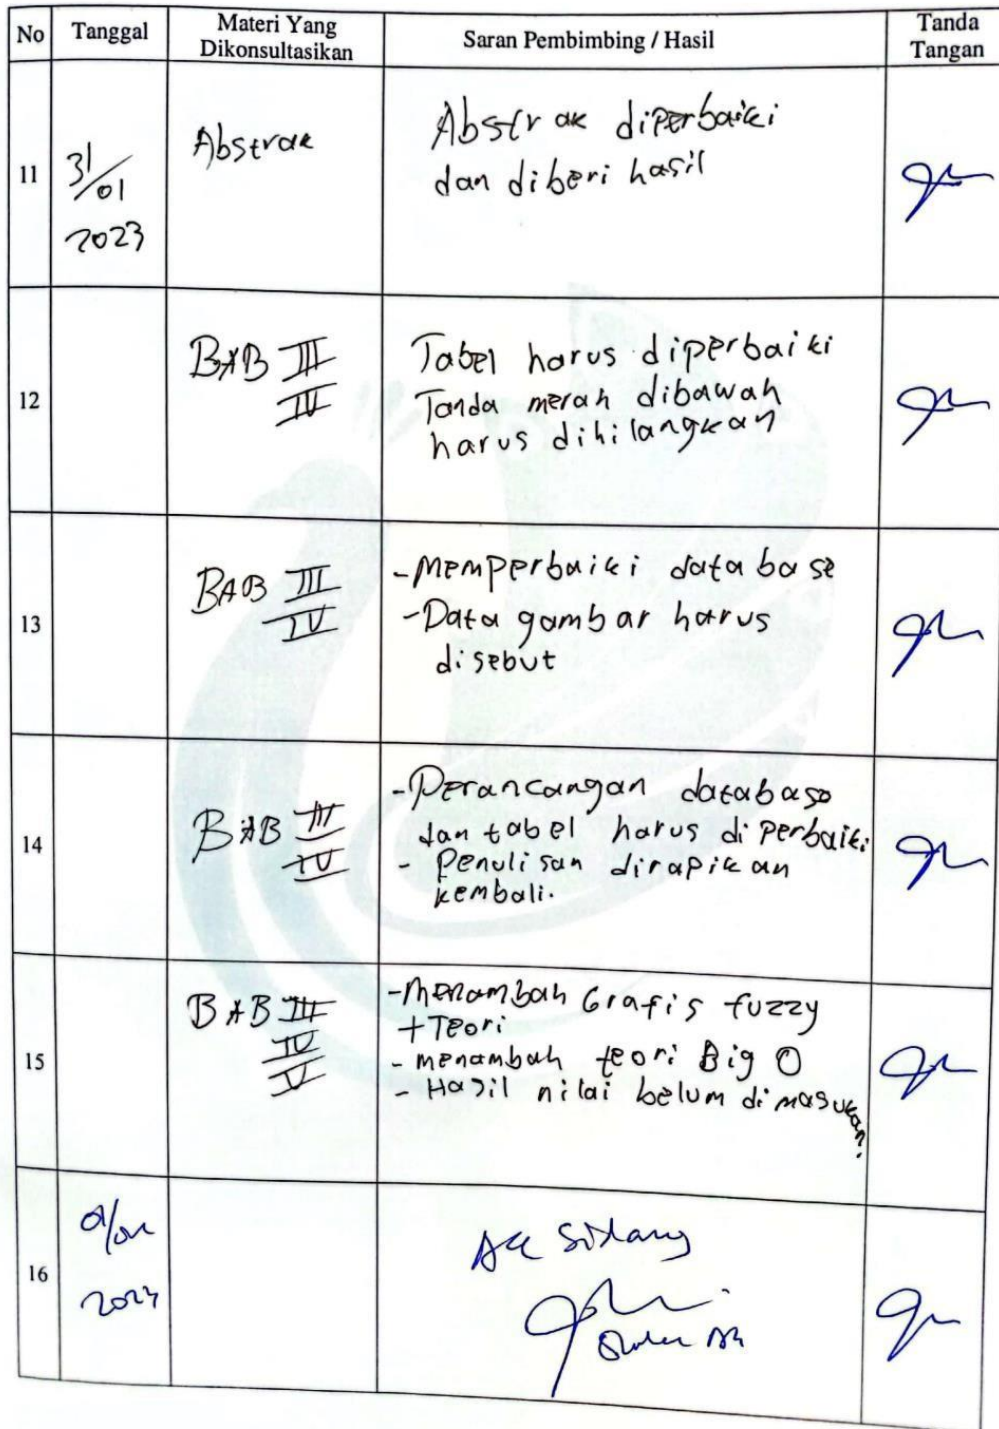 No Tanggal Materi Yang Dikonsultasikan Saran Pembimbing / Hasil Tanda Tangan
11
31/01
2023
Abstrak
Abstrak diperbaiki
dan diberi hasil
12
BAB III
IV
Tabel harus diperbaiki
Tanda merah dibawah
harus dihilangkan
13
BAB III
IV
-Memperbaiki database
-Data gambar harus
disebut
14
BAB III
IV
-Perancangan database
dan tabel harus diperbaiki
- Penulisan dirapikan
kembali.
15
BAB III
IV
V
-Menambah Grafis fuzzy
+Teori
- menambah teori Big O
- Hasil nilai belum dimasukan?
16
Acc Sidang